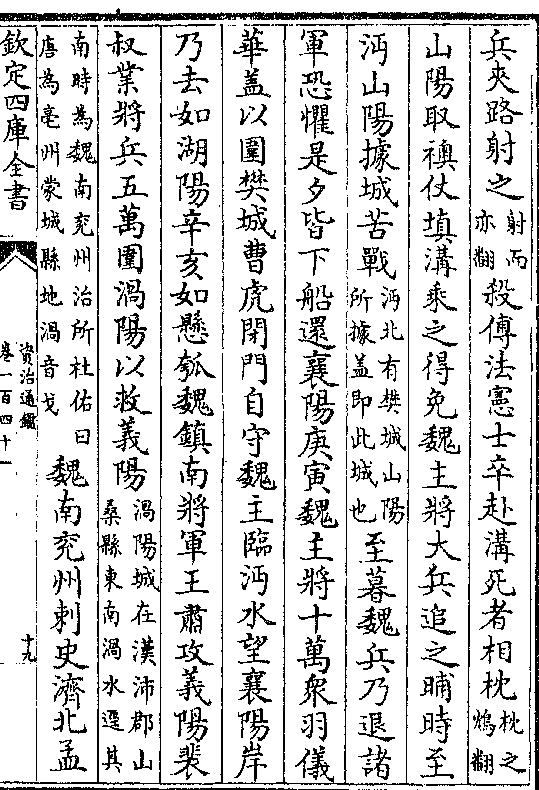 兵夾路射之射而亦翻殺傅法憲士卒赴溝死者相枕枕之鴆翻
山陽取襖仗填溝乘之得免魏主將大兵追之晡時至
沔山陽據城苦戰沔北有樊城山陽所據盖即此城也至暮魏兵乃退諸
軍恐懼是夕皆下船還襄陽庚寅魏主將十萬衆羽儀
華盖以圍樊城曹虎閉門自守魏主臨沔水望襄陽岸
乃去如湖陽辛亥如懸瓠魏鎮南將軍王肅攻義陽裴
叔業將兵五萬圍渦陽以救義陽渦陽城在漢沛郡山桑縣東南渦水逕其
南時為魏南兖州治所杜佑曰唐為亳州蒙城縣地渦音戈魏南兖州刺史濟北孟
欽定四庫全書
資治通鑑
卷一百四十一
十九